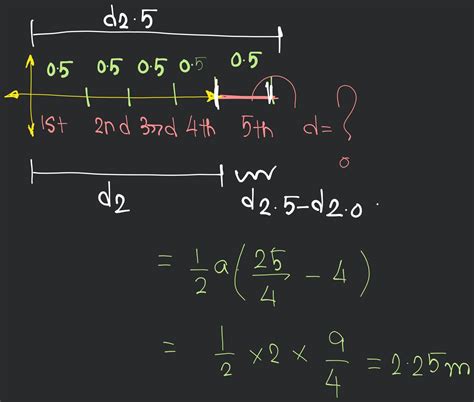 d2.5
0.5 0.5 0.5 0.5 0.5
1st 2nd 3rd 4th 5th d=?
d2 d2.5-d2.0.
= 1/2 a(25/4 - 4)
= 1/2 × 2 × 9/4 = 2.25m